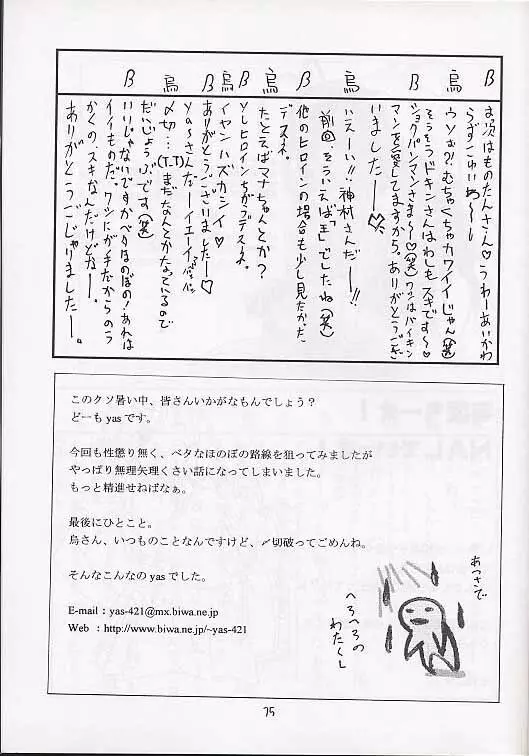 β
お次はものたんさん♡うわーあいかわ
らずすごいわ〜〜し
烏
ウソぉ?!むちゃくちゃカワイイじゃん(笑)
そうそうドキンさんはわしもスキです〜♡
ショクパンマンさま〜♡(笑)ワシはバイキン
マンを愛してますから。ありがとうござ
いましたー♡
烏
いえーい!!神村さんだー!!
前回、そういえば「王」でしたね(笑)
β
他のヒロインの場合も少し見たかた
デスネ。
烏
たとえばマナちゃんとか?
β
ソレヒロインちがうデスネ
烏
イヤンハズカシイ♡
β
ありがとうございましたー♡
yaSさんだーイエーイ
烏
〆切…(T.T)まだなんとかなっているので
だいじょうぶです(笑)
β
いいじゃないですかベタなほのぼの!あれは
イイものだ。ワシにが手だからのう
かくの、スキなんだけどなー。
ありがとうごじゃりましたー。
このクソ暑い中、皆さんいかがなもんでしょう?
どーもyasです。
今回も性懲り無く、ベタなほのぼの路線を狙ってみましたが
やっぱり無理矢理くさい話になってしまいました。
もっと精進せねばなぁ。
最後にひとこと。
烏さん、いつものことなんですけど、〆切破ってごめんね。
そんなこんなのyasでした。
E-mail : yas-421@mx.biwa.ne.jp
Web : http://www.biwa.ne.jp/~yas-421
あつさで
へろへろの
わたくし
75